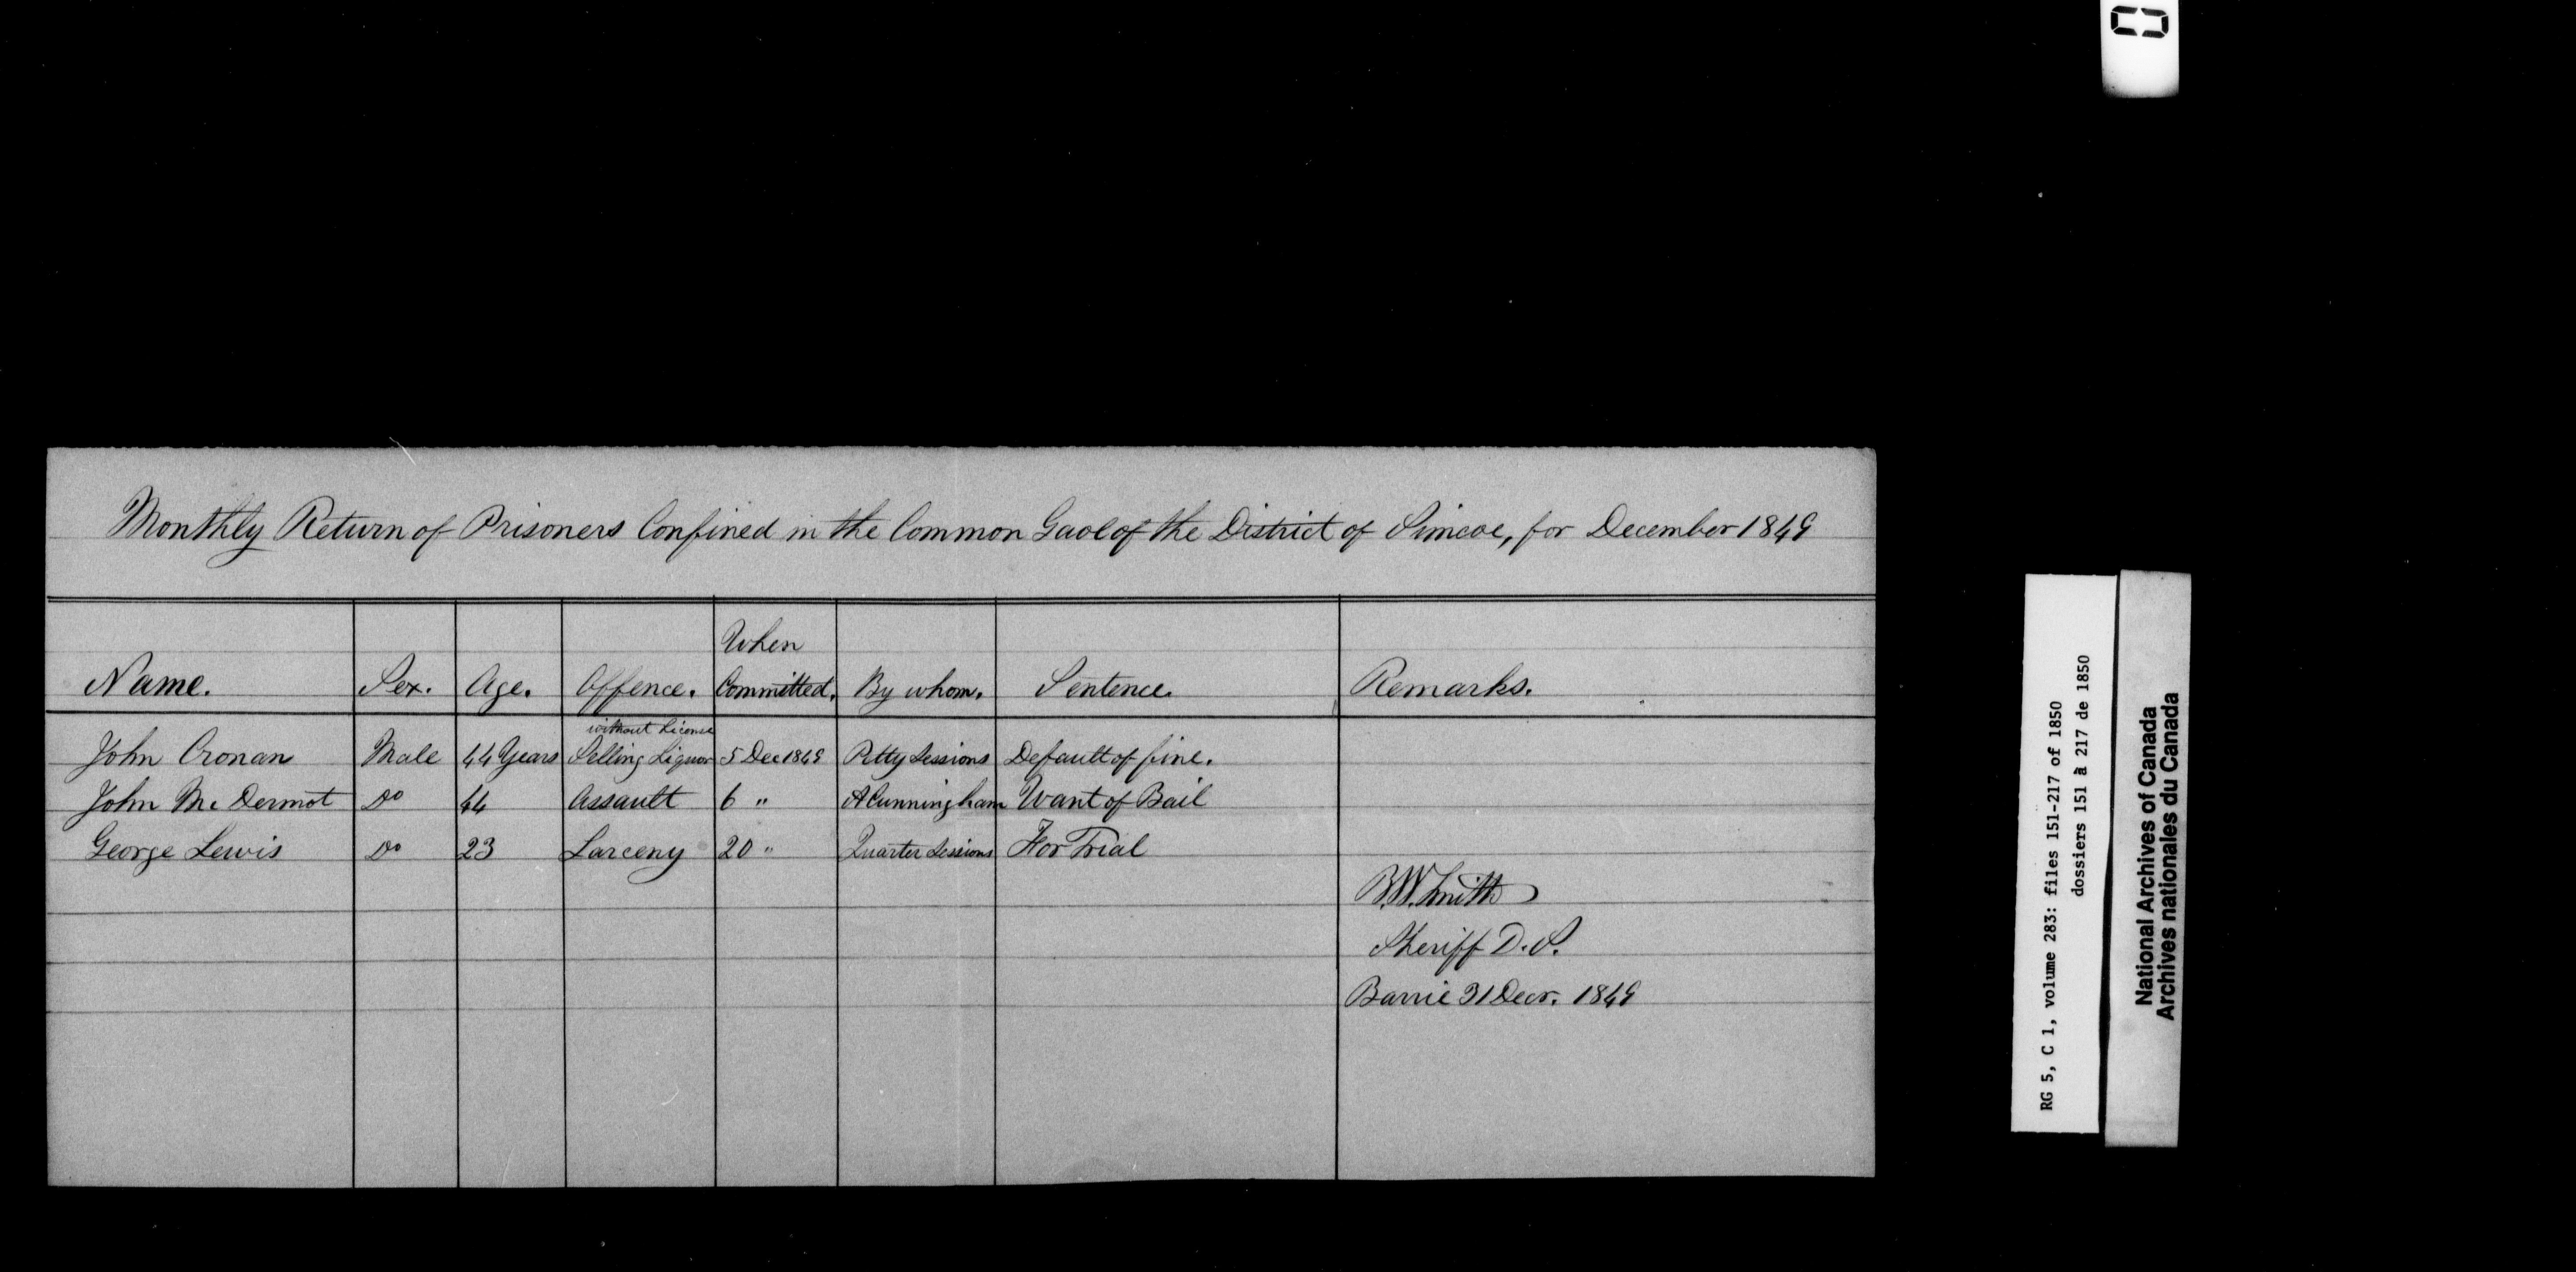 Monthly Return of Prisoners Confined in the Common Gaol of the District of Simcoe, for December 1849
Name. Sex. Age. Offence. When Committed. By whom. Sentence. Remarks.
without License
John Cronan Male 44 Years Selling Liquor 5 Dec 1849 Petty Sessions Default of fine.
John McDermot Do 44 Assault 6 " A Cunningham Want of Bail
George Lewis Do 23 Larceny 20 " Quarter Sessions For Trial
B.W. Smith
Sheriff D.S.
Barrie 31 Decr. 1849
RG 5, C 1, volume 283: files 151-217 of 1850
dossiers 151 à 217 de 1850
National Archives of Canada
Archives nationales du Canada